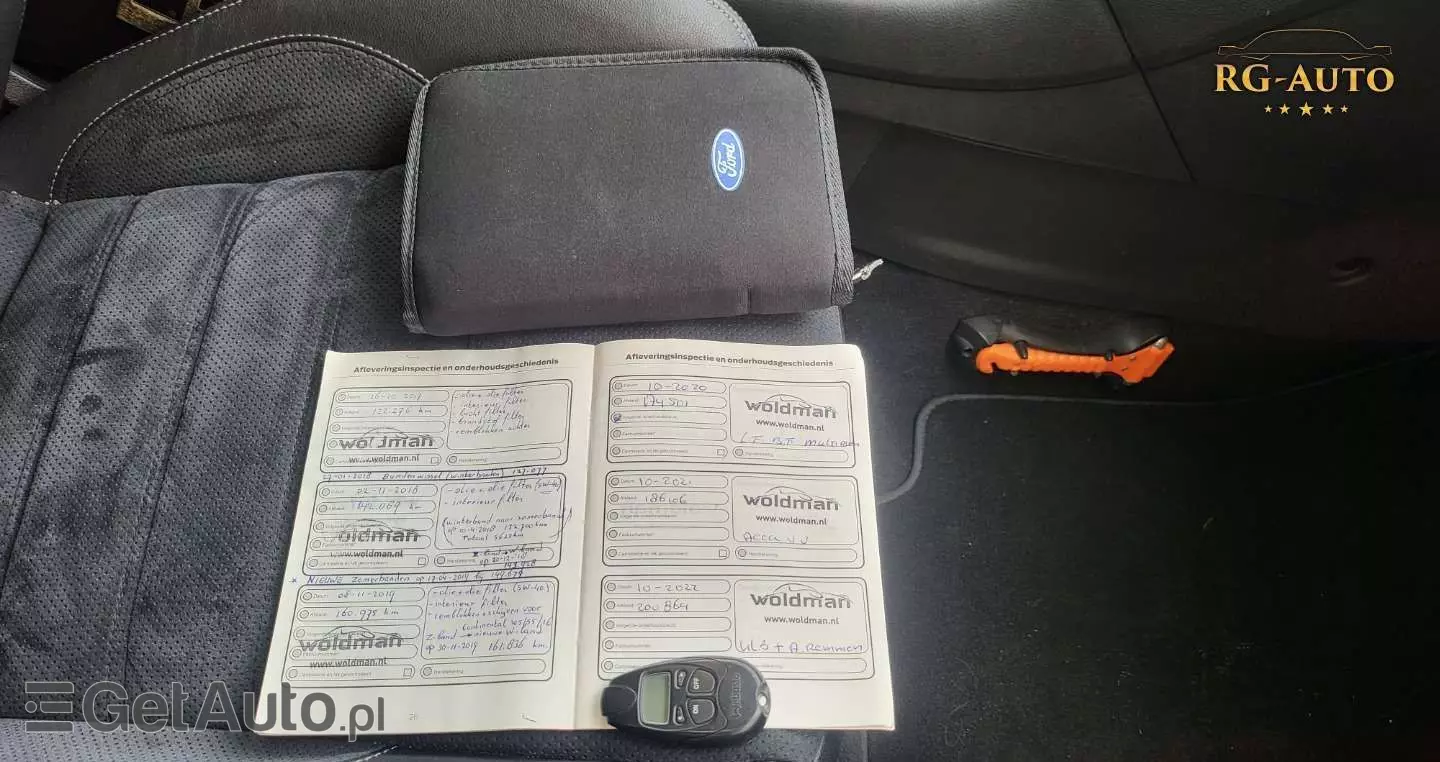 RG-AUTO
Ford
Afleveringsinspectie en onderhoudsgeschiedenis
Datum 16-10 2017
122.276 km
- olie + oliefilter
- interieur filter
- lucht filter
- brandstof filter
- remblokken achter
woldman
www.woldman.nl
Handtekening
27-01-2018 Bandenwissel (winterbanden) 127.077
Datum 22-11-2018
142.069 km
- olie + oliefilter (5W-40)
- interieur filter
(winterband naar zomerband
woldman
www.woldman.nl
Handtekening
* NIEUWE Zomerbanden op 17-04-2019 bij 149.079
Datum 06-11-2019
160.975 km
- olie + oliefilter (5W-40)
- interieur filter
- remblokken + schijven voor
Continental 205/55/16
Z-band → nieuwe W-band
op 30-11-2019 161.836 km.
woldman
www.woldman.nl
Handtekening
Afleveringsinspectie en onderhoudsgeschiedenis
Datum 10-2020
174.501
woldman
www.woldman.nl
Handtekening
Datum 10-2021
186106
woldman
www.woldman.nl
Accu
Handtekening
Datum 10-2022
200864
woldman
www.woldman.nl
A. Remmen
OFF
ON
GetAuto.pl